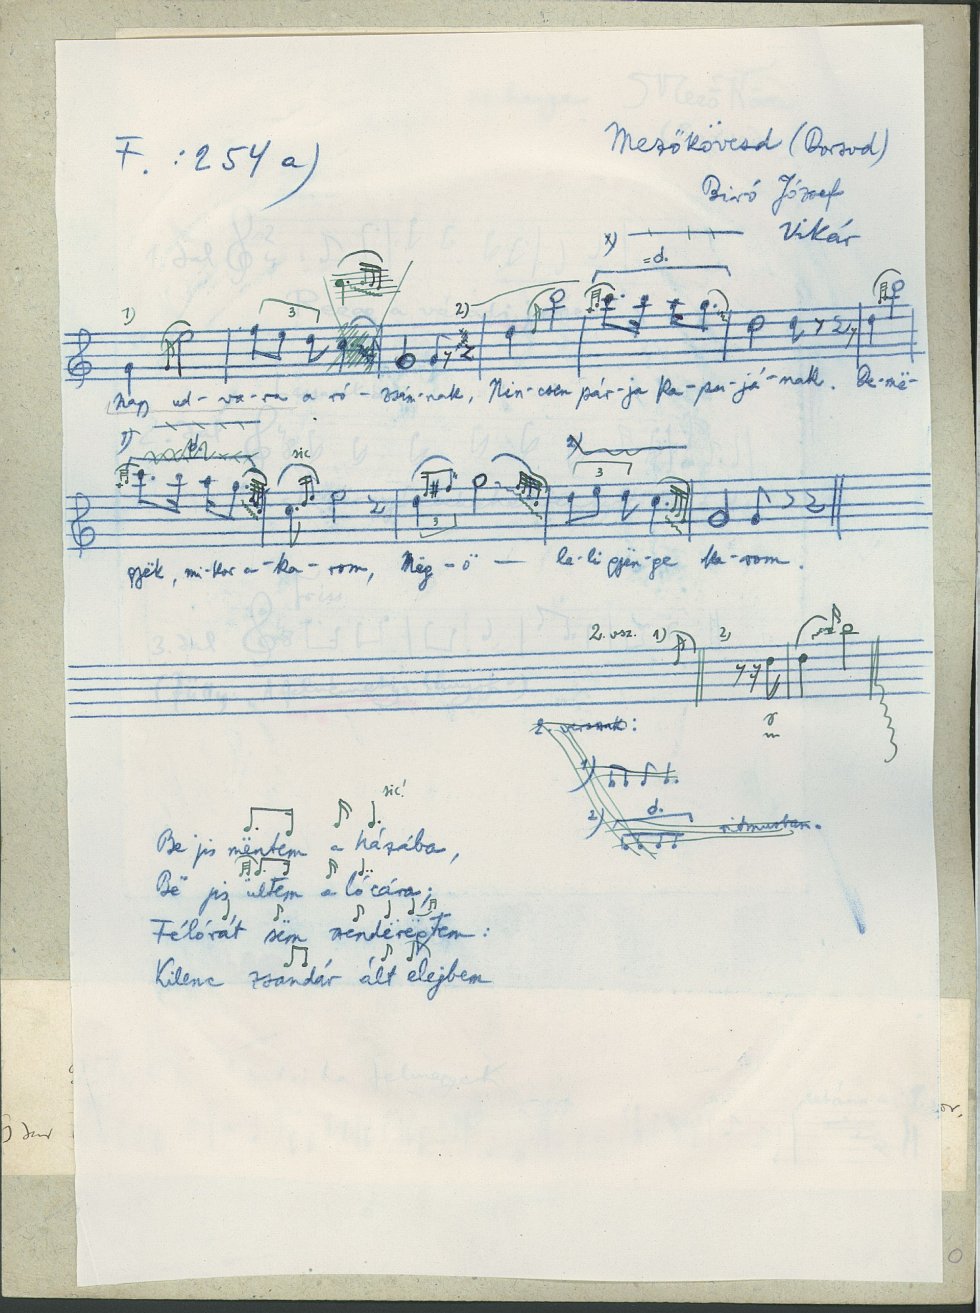 F. : 254 a)
Mezőkövesd (Borsod)
Biró József
Vikár
x)
=d.
1)
3
2)
Nagy ud-va-ra a ró-zsán-nak, Nin-csen pár-ja ka-pu-já-nak. De-më-
1)
sic
3
3
gyëk, mi-kor a-ka-rom, Mëg-ö — le-li gyën-ge ka-rom.
2. vsz. 1) 2)
2. versszak:
1)
2) d. ritmusban.
sic!
Be jis mëntem a házába,
Bë jis ültem a lócára;
Félórát sëm szenderëptem:
Kilenc zsandár ált elejbem